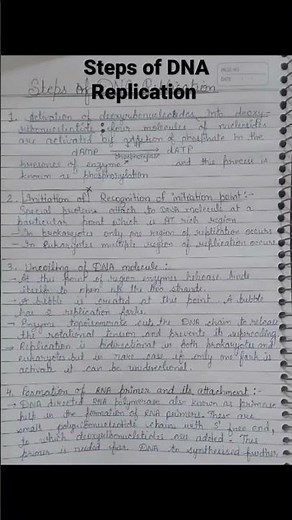 Steps of DNA
Replication
Steps of DNA Replication
1. Activation of deoxyribonucleotides into deoxy-
ribonucleotide four molecules of nucleotides
are activated by addition of phosphate in the
dAMP phosphorylase dATP
presence of enzyme and this process is
known as phosphorylation
2. Initiation of Recognition of initiation point :-
Special proteins attach to DNA molecule at a
particular point which is AT rich region
- In prokaryotes only one region of replication occurs
- In Eukaryotes multiple region of replication occurs
3. Uncoiling of DNA molecule :-
→ At this point of region enzymes helicase binds
itself to open up the two strands.
→ A bubble is created at this point. A bubble
has 2 replication forks.
→ Enzyme topoisomerase cuts the DNA chain to release
the rotational tension and prevents its supercoiling
→ Replication is bidirectional in both prokaryotes and
eukaryotes but in rare case if only one fork is
activate it can be unidirectional.
4. Formation of RNA primer and its attachment :-
→ DNA directed RNA polymerase also known as primase
help in the formation of RNA primers. These are
small polyribonucleotide chain with 3' free end,
to which deoxyribonucleotides are added. This
primer is needed for DNA to synthesised further